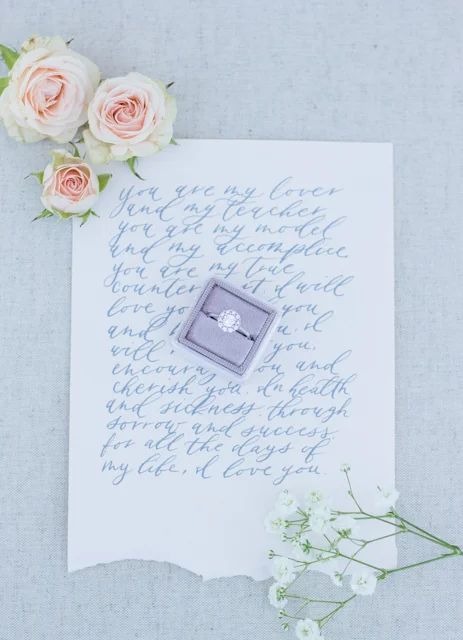 you are my lover
and my teacher
you are my model
and my accomplice
you are my true
counter t I will
love yo you
and u. I
will you,
encourag you and
cherish you. In health
and sickness, through
sorrow and success
for all the days of
my life, I love you.